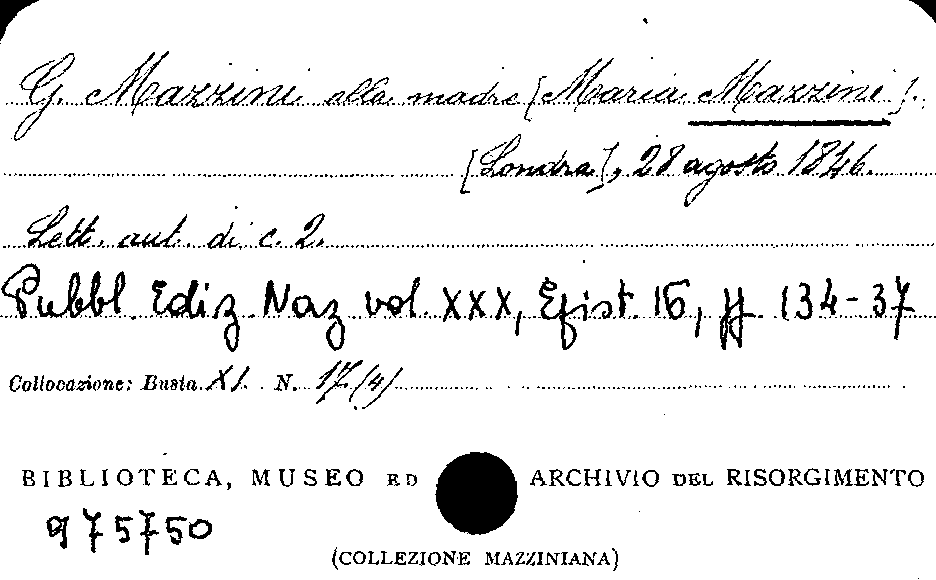 G. Mazzini alla madre [Maria Mazzini].
[Londra], 28 agosto 1846.
Lett. aut. di c. 2.
Pubbl. Ediz. Naz. vol. XXX, Epist. 16, pp. 134-37
Collocazione: Busta XI. N. 17(4)
BIBLIOTECA, MUSEO ED ARCHIVIO DEL RISORGIMENTO
975750
(COLLEZIONE MAZZINIANA)